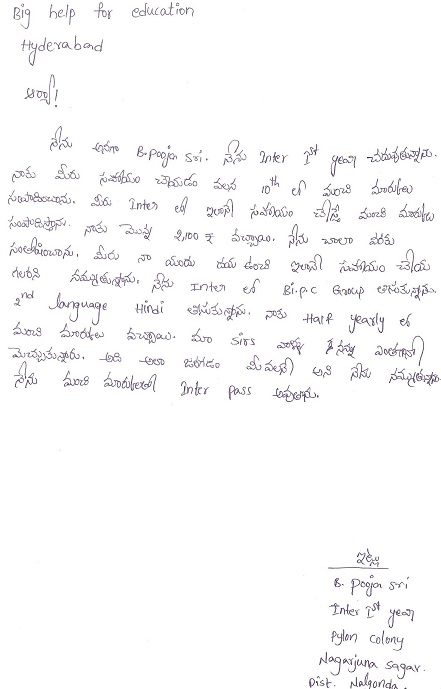 Big help for education
Hyderabad
ఆర్యా!
నేను అనగా B.pooja sri. నేను Inter Ist year చదువుతున్నాను.
నాకు మీరు సహాయం చేయడం వలన 10th లో మంచి మార్కులు
సంపాదించాను. మీరు Inter లో ఇలానే సహాయం చేస్తే మంచి మార్కులు
సంపాదిస్తాను. నాకు మొన్న 2,100 ₹ వచ్చాయి. నేను చాలా వరకు
సంతోషించాను. మీరు నా యందు దయ ఉంచి ఇలానే సహాయం చేయ
గలరని నమ్ముతున్నాను. నేను Inter లో Bi.p.c Group తీసుకున్నాను.
2nd language Hindi తీసుకున్నాను. నాకు Half yearly లో
మంచి మార్కులు వచ్చాయి. మా sirs వాళ్ళు నన్ను ఎంతగానో
మెచ్చుకున్నారు. అది అలా జరగడం మీ వలనే అని నేను నమ్ముతున్నాను
నేను మంచి మార్కులతో Inter pass అవుతాను.
ఇట్లు
B. pooja sri
Inter Ist year
Pylon colony
Nagarjuna sagar.
Dist. Nalgonda.